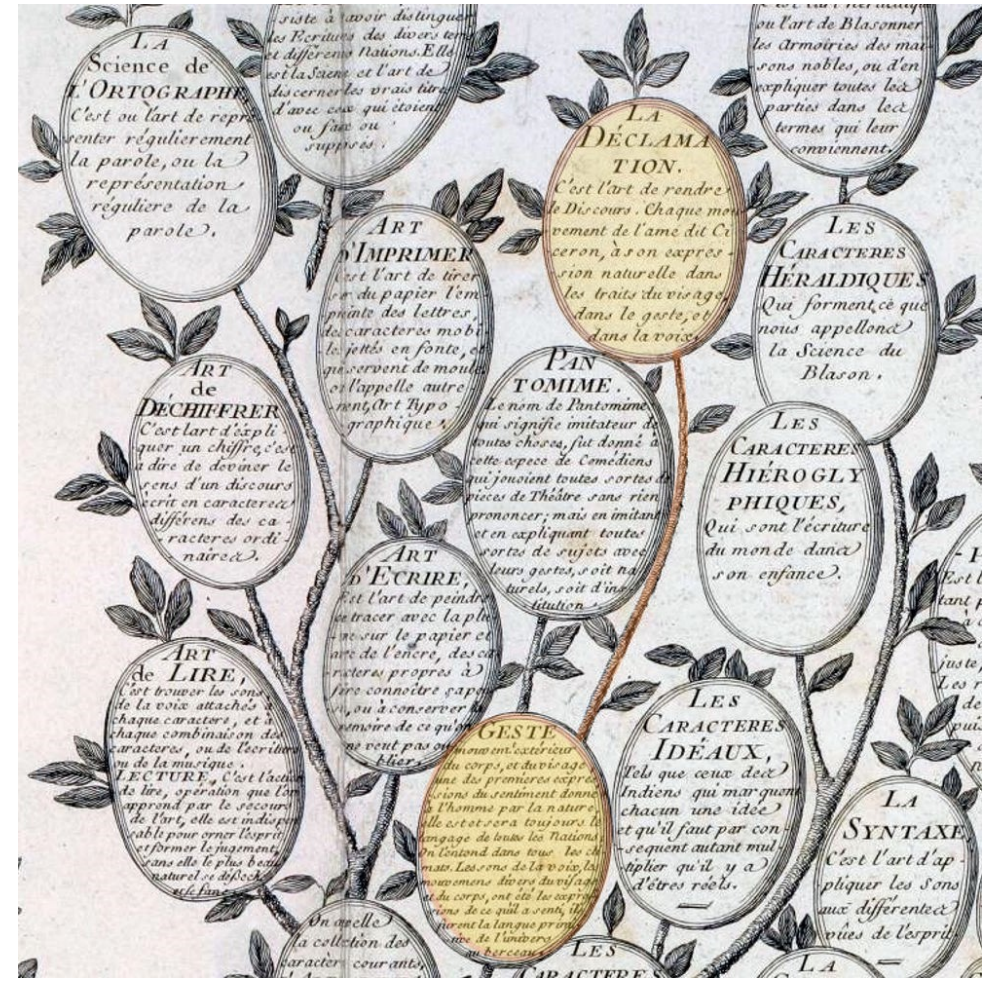 LA
Science de
L'ORTOGRAPHE
C'est ou l'art de repré
senter régulierement
la parole, ou la
représentation
réguliere de la
parole.
siste à avoir distinguer
les Ecritures des divers tems
et différens Nations. Elle
est la Scienc et l'art de
discerner les vrais titres
d'avec ceux qui étoient
ou faux ou
supposés.
LA
DÉCLAMA
TION.
C'est l'art de rendre
le Discours. Chaque mou
vement de l'ame dit Ci
ceron, à son expres-
sion naturelle dans
les traits du visage,
dans le geste, et
dans la voix.
ou l'art de Blasonner
les Armoiries des mai
sons nobles, ou d'en
expliquer toutes les
parties dans les
termes qui leur
conviennent.
ART
D'IMPRIMER
est l'art de tirer
sur du papier l'em-
preinte des lettres,
de caracteres mobi-
les jettés en fonte, et
qui servent de moule
l'appelle autre
ment, Art Typo-
graphique.
LES
CARACTERES
HÉRALDIQUES
Qui forment ce que
nous appellons
la Science du
Blason.
ART
de
DÉCHIFFRER
C'est l'art d'expli
quer un chiffre, c'est
à dire de deviner le
sens d'un discours
écrit en caracteres
différens des ca-
racteres ordi-
naires.
PAN
TOMIME.
Le nom de Pantomime
qui signifie imitateur de
toutes choses, fut donné à
cette espece de Comédiens
qui jouoient toutes sortes de
pieces de Théâtre sans rien
prononcer; mais en imitant
et en expliquant toutes
sortes de sujets avec
leurs gestes, soit na
turels, soit d'ins
titution.
LES
CARACTERES
HIÉROGLY
PHIQUES,
Qui sont l'écriture
du monde dans
son enfance.
ART
D'ECRIRE,
Est l'art de peindre
et tracer avec la plu
me sur le papier et
avec de l'encre, des ca
racteres propres à
faire connoître
ou à conserver la
mémoire de ce qu'on
ne veut pas ou
blier.
ART
de LIRE,
C'est trouver les sons
de la voix attachés à
chaque caractere, et à
chaque combinaison des
caracteres, ou de l'ecriture
ou de la musique.
LECTURE, C'est l'action
de lire, opération que l'on
apprend par le secours
de l'art, elle est indispen
sable pour orner l'esprit
et former le jugement,
sans elle le plus beau
naturel se déseche
et se fane.
GESTE
mouvem.t extérieur
du corps, et du visage
une des premieres expres
sions du sentiment donné
à l'homme par la nature,
elle est et sera toujours le
langage de toutes les Nations
On l'entend dans tous les cli
mats. Les sons de la voix, les
mouvemens divers du visage
et du corps, ont été les expres
sions de ce qu'il a senti, ils
furent la langue primi
tive de l'univers
au berceau.
LES
CARACTERES
IDÉAUX,
Tels que ceux des
Indiens qui marquent
chacun une idée
et qu'il faut par con-
sequent autant mul
tiplier qu'il y a
d'êtres réels.
LA
SYNTAXE
C'est l'art d'ap-
pliquer les Sons
aux différentes
vües de l'esprit.
On appelle
la colletion des
caracter courants,
LES
CARACTERES
LA